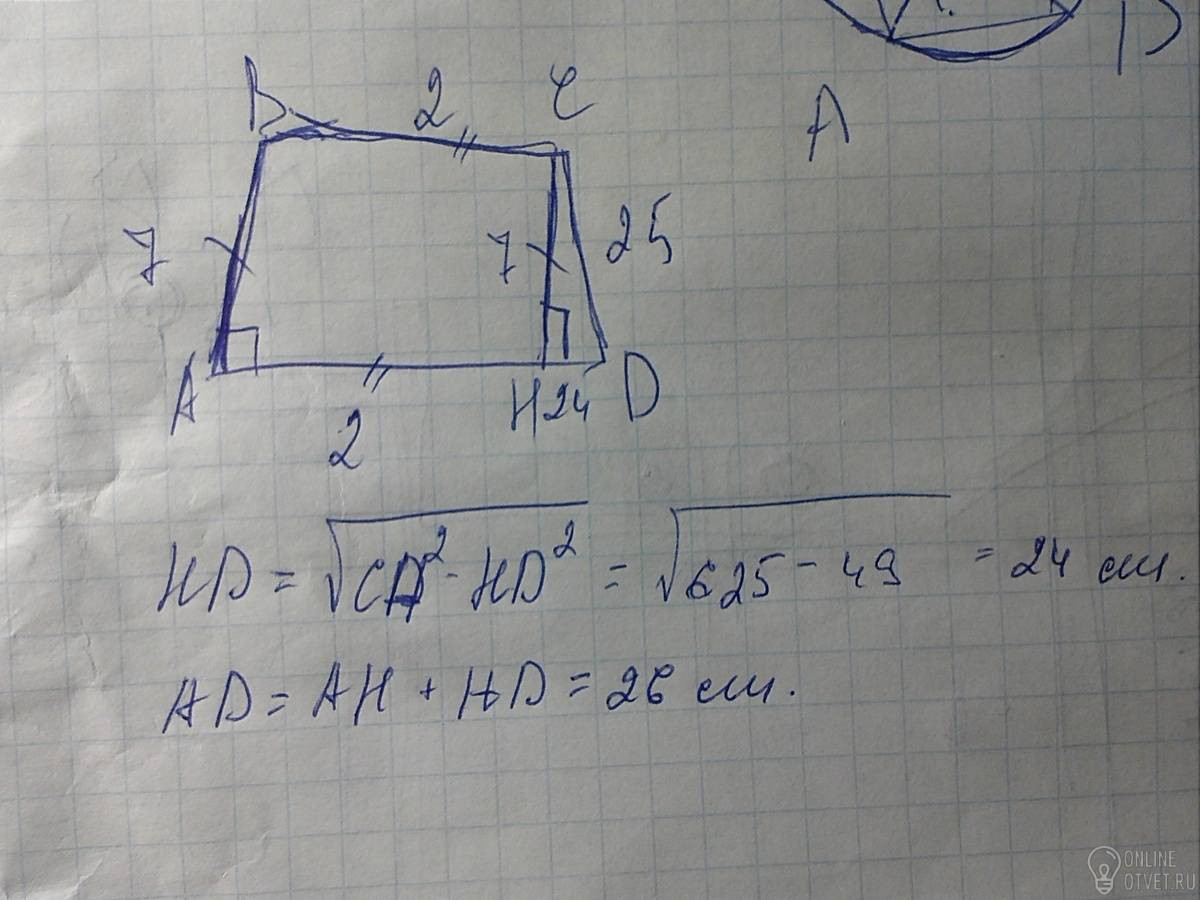 D
B 2 C
A
7 7 25
A H 24 D
2
HD = √CD² - HD² = √625 - 49 = 24 см.
AD = AH + HD = 26 см.
ONLINE
OTVET.RU